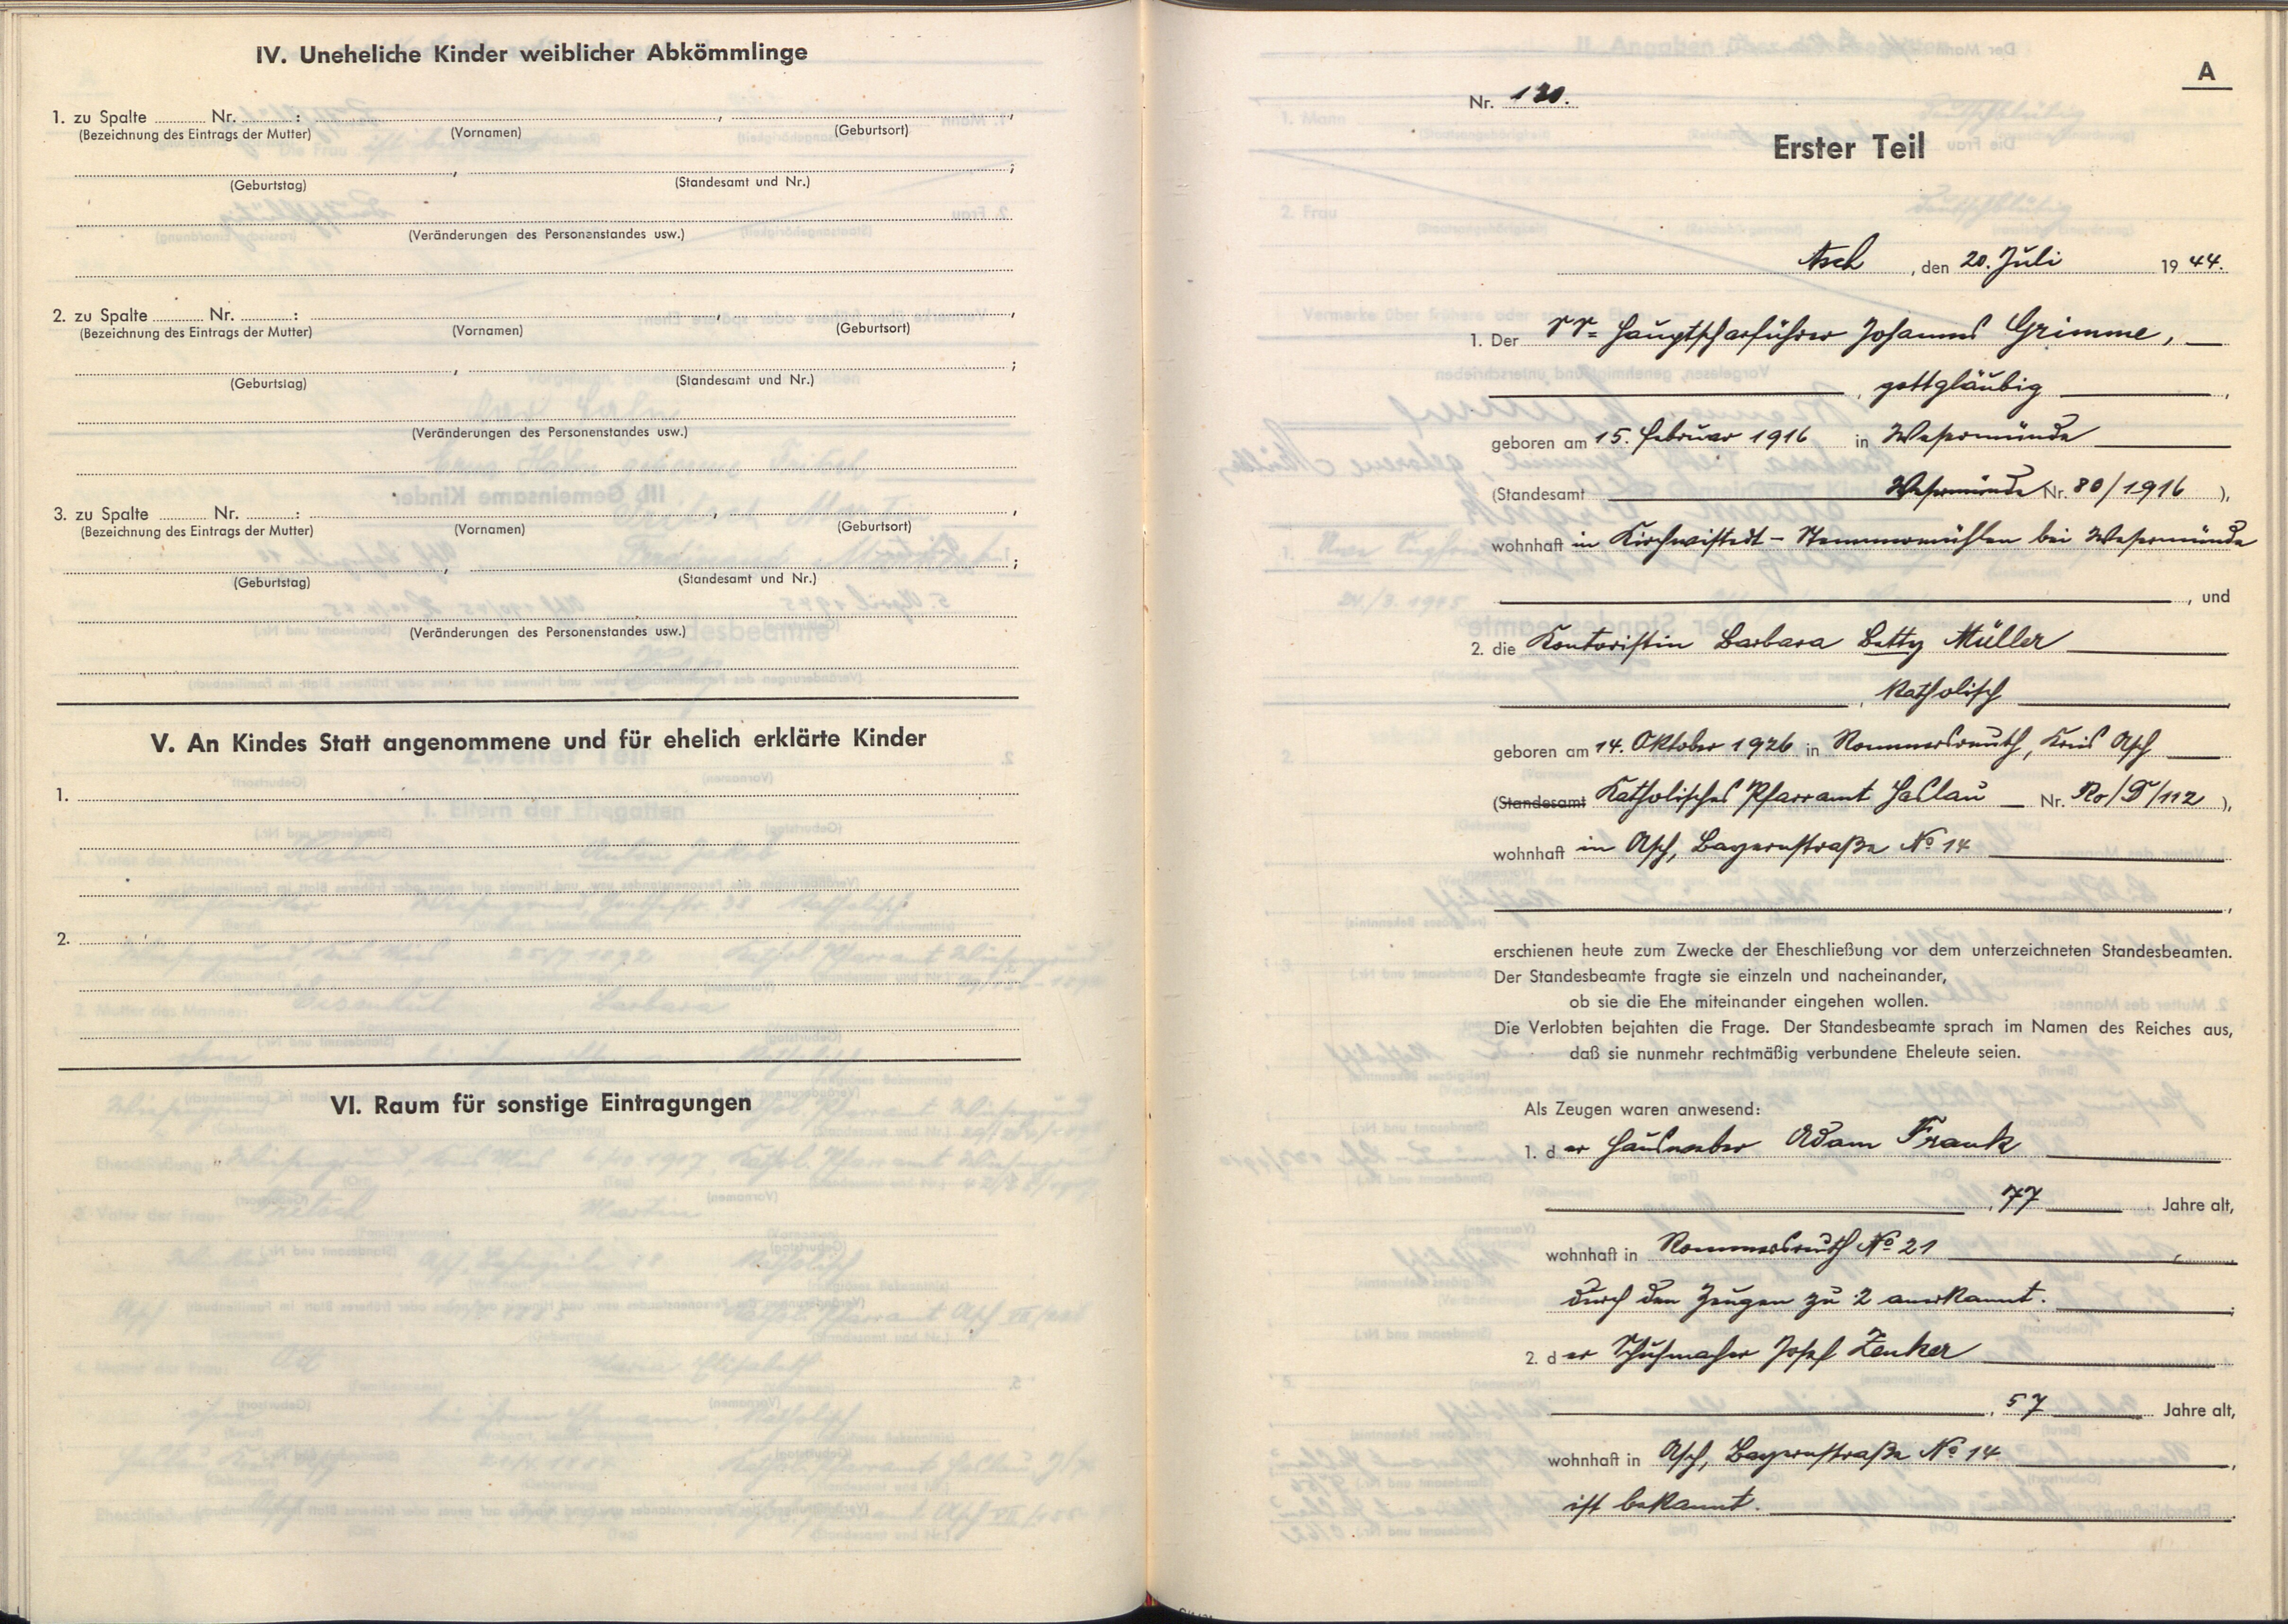 IV. Uneheliche Kinder weiblicher Abkömmlinge
1. zu Spalte ......... Nr. ......... : ........., .........,
(Bezeichnung des Eintrags der Mutter) (Vornamen) (Geburtsort)
........., .........;
(Geburtstag) (Standesamt und Nr.)
(Veränderungen des Personenstandes usw.)
2. zu Spalte ......... Nr. ......... : ........., .........,
(Bezeichnung des Eintrags der Mutter) (Vornamen) (Geburtsort)
........., .........;
(Geburtstag) (Standesamt und Nr.)
(Veränderungen des Personenstandes usw.)
3. zu Spalte ......... Nr. ......... : ........., .........,
(Bezeichnung des Eintrags der Mutter) (Vornamen) (Geburtsort)
........., .........;
(Geburtstag) (Standesamt und Nr.)
(Veränderungen des Personenstandes usw.)
V. An Kindes Statt angenommene und für ehelich erklärte Kinder
1.
2.
VI. Raum für sonstige Eintragungen
A
Nr. 130.
Erster Teil
Asch, den 20. Juli 1944.
1. Der SS-Hauptscharführer Johannes Grimme,
, gottgläubig,
geboren am 15. Februar 1916 in Wesermünde
(Standesamt Wesermünde Nr. 80/1916),
wohnhaft in Kirchwistedt - Stemmermühlen bei Wesermünde
, und
2. die Kontoristin Barbara Betty Müller
, katholisch,
geboren am 14. Oktober 1926 in Rommersreuth, Kreis Asch
(Standesamt Katholisches Pfarramt Haslau Nr. Ro/D/112),
wohnhaft in Asch, Bayernstraße No 14
,
erschienen heute zum Zwecke der Eheschließung vor dem unterzeichneten Standesbeamten.
Der Standesbeamte fragte sie einzeln und nacheinander,
ob sie die Ehe miteinander eingehen wollen.
Die Verlobten bejahten die Frage. Der Standesbeamte sprach im Namen des Reiches aus,
daß sie nunmehr rechtmäßig verbundene Eheleute seien.
Als Zeugen waren anwesend:
1. der Hausweber Adam Frank
, 77 Jahre alt,
wohnhaft in Rommersreuth No 21,
durch den Zeugen zu 2 anerkannt.
2. der Schuhmacher Josef Zenker
, 57 Jahre alt,
wohnhaft in Asch, Bayernstraße No 14,
ist bekannt.